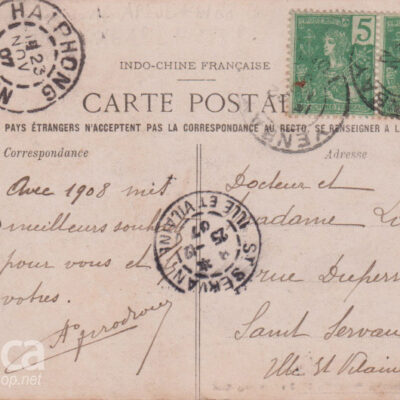 HAIPHONG
23
NOV
07
5
YENBAY
INDO-CHINE FRANÇAISE
CARTE POSTA
PAYS ÉTRANGERS N'ACCEPTENT PAS LA CORRESPONDANCE AU RECTO. SE RENSEIGNER A L
Correspondance
Adresse
Avec 1908 mes
meilleurs souh
pour vous et
votres.
ST SERVAN
ILLE ET VILAINE
25
07
Docteur et
adame
rue Duperr
Saint Servan
Ille et Vilain
ca
op.net